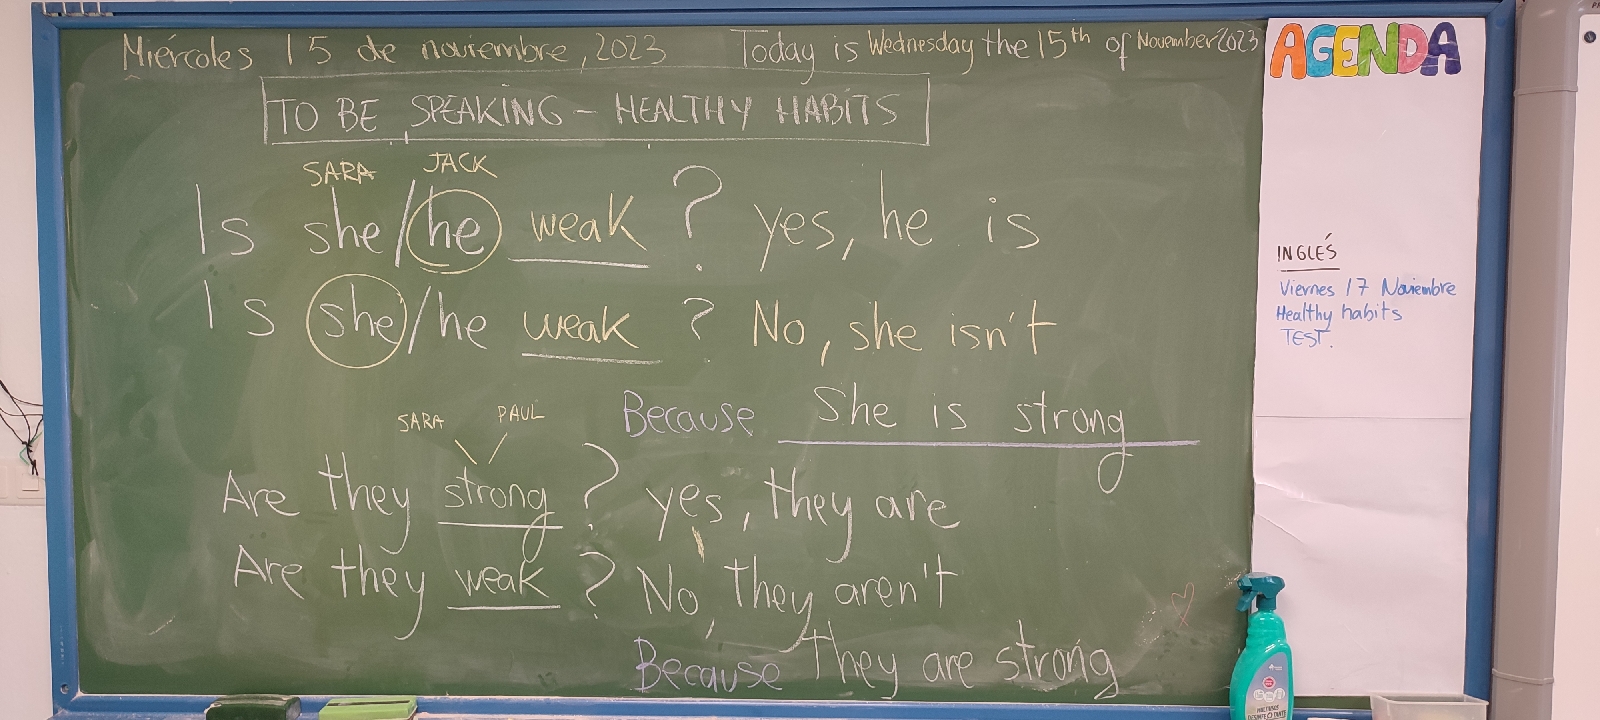 Miércoles 15 de noviembre, 2023 Today is Wednesday the 15th of November 2023
TO BE SPEAKING - HEALTHY HABITS
SARA JACK
Is she/he weak? yes, he is
Is she/he weak? No, she isn't
Because She is strong
SARA PAUL
Are they strong? yes, they are
Are they weak? No, they aren't
Because They are strong
AGENDA
INGLÉS
Viernes 17 Noviembre
Healthy habits
TEST.